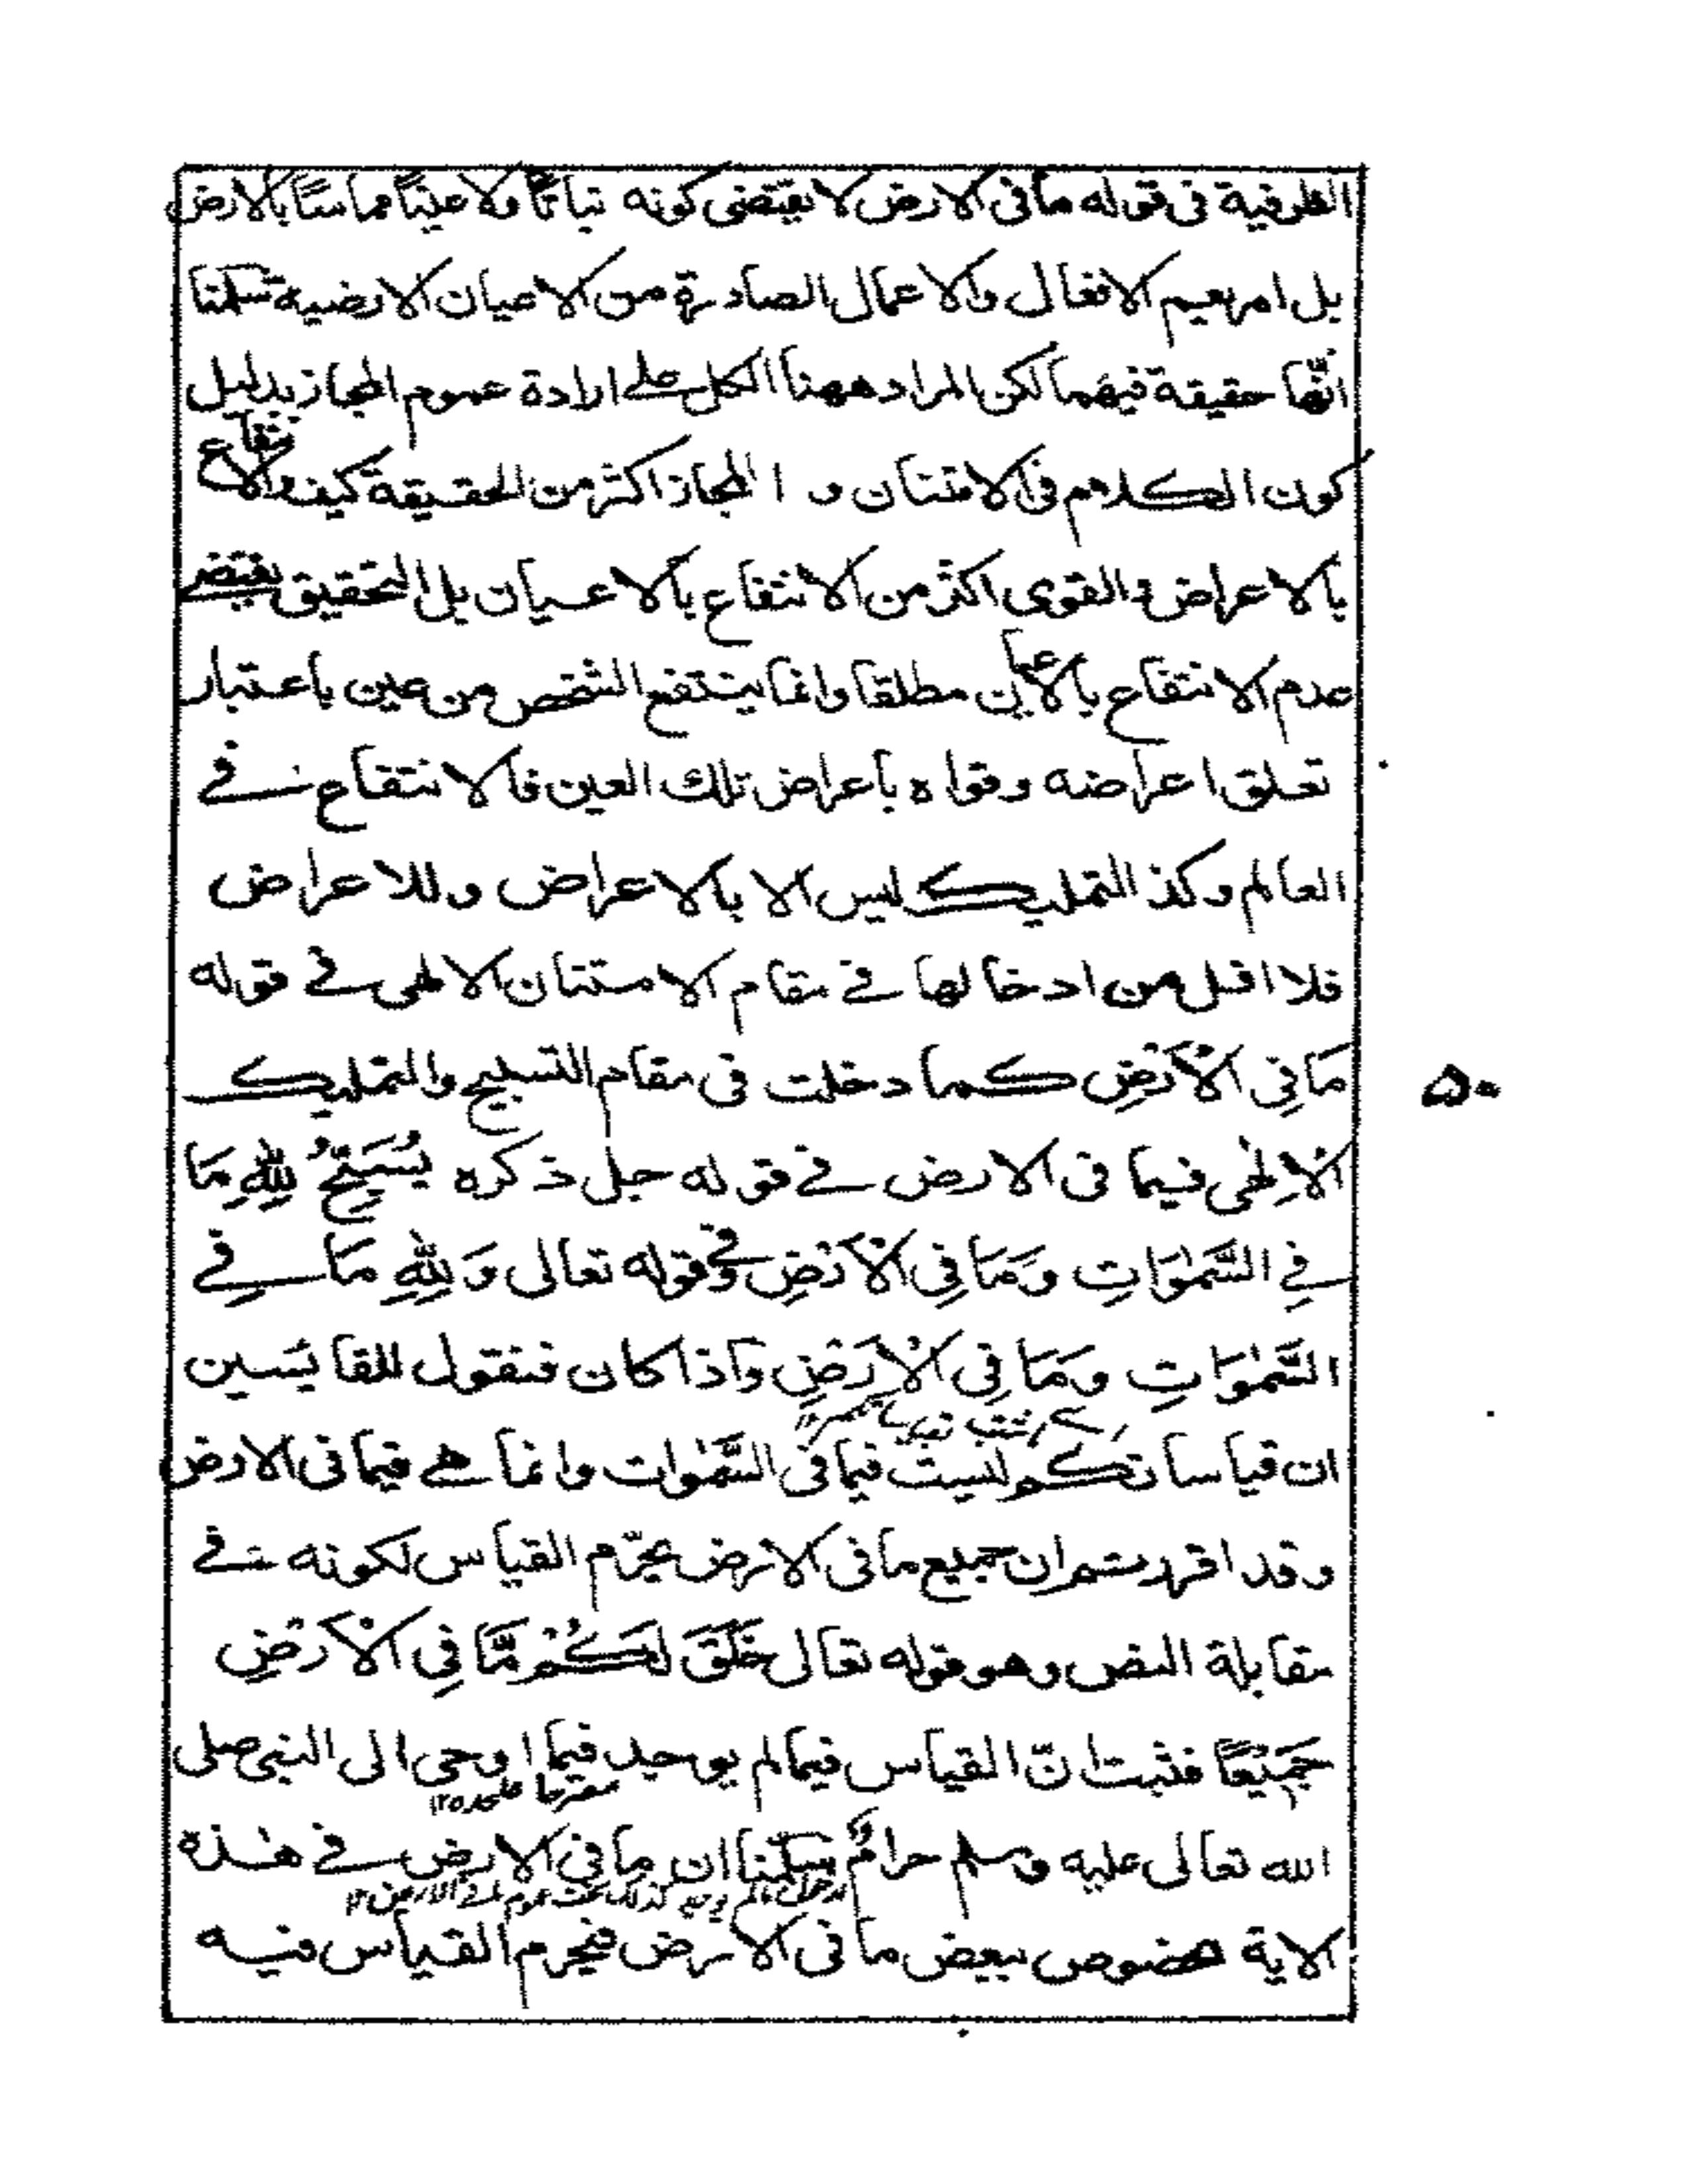 الظرفية فى قوله ما فى الارض لا يقتضى كونه نباتا ولا عينًا مماسًّا بالارض
بل امر يعيم الافعال والاعمال الصادرة من الاعيان الارضيه سلمنا
انّها حقيقة فيهما لكن المراد ههنا الكل على ارادة عموم المجاز بدليل
كون الكلام فى الامتنان و المجاز اكثر من الحقيقة كيف والانتفاع
بالاعراض والقوى اكثر من الانتفاع بالاعيان بل التحقيق يقتضے
عدم الانتفاع بالاعيان مطلقا وانما ينتفع الشخص من عين باعتبار
تعلق اعراضه وقواه باعراض تلك العين فالانتفاع فے
العالم وكذ التمليك ليس الا بالاعراض وللاعراض
فلا اقل من ادخالها فے مقام الامتنان الالهى فے قوله
مَا فِى الْاَرْضِ كما دخلت فى مقام التسبيح والتمليك
الْاِلٰهى فيما فى الارض فے قوله جل ذكره يُسَبِّحُ لِلّٰهِ مَا
فِے السَّمٰوَاتِ وَمَا فِى الْاَرْضِ وفے قوله تعالى وَ لِلّٰهِ مَا فِے
السَّمٰوَاتِ وَمَا فِى الْاَرْضِ وَاذا كان فنقول للقايسين
ان قياساتكم ليست فيما فى السَّمٰوات وانما هے فيما فى الارض
وقد اقررتم ان جميع ما فى الارض محرّم القياس لكونه فے
مقابلة النص وهو قوله تعالى خَلَقَ لَكُمْ مَّا فِى الْاَرْضِ
جَمِيْعًا فثبت انّ القياس فيما لم يوجد فيما اوحى الى النبى صلى
الله تعالى عليه وسلم حرامٌ سلّمنا ان ما فى الارض فے هٰذه
الاية مخصوص ببعض ما فى الارض فيحرم القياس فيه
۵۰